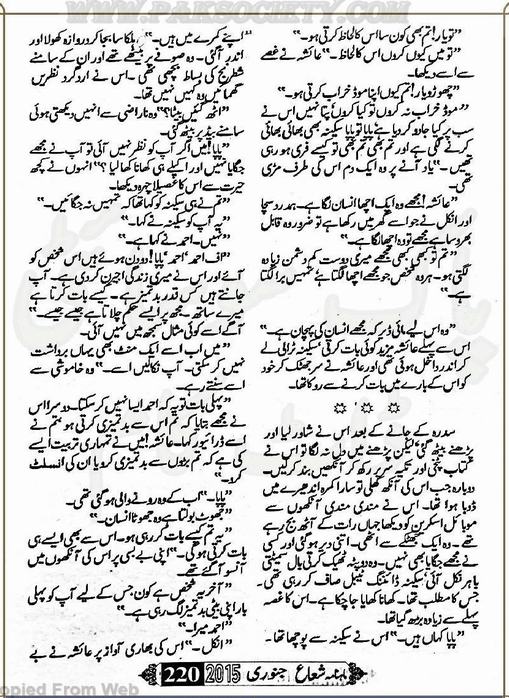 WWW.PAKSOCIETY.COM
”تو یار! تم بھی کون سا اس کا لحاظ کرتی ہو۔“
”تو میں کیوں کروں اس کا لحاظ۔“ عائشہ نے غصے
سے اسے دیکھا۔
”چھوڑو یار! تم کیوں اپنا موڈ خراب کرتی ہو۔“
”موڈ خراب نہ کروں تو کیا کروں، پتا نہیں اس نے
سب پر کیا جادو کر دیا ہے پاپا تو پاپا سکینہ بھی بھائی بھائی
کرنے لگی ہے اور تم بھی تم بھی تو کیسے فری ہو رہی
تھیں۔“ یاد آنے پر وہ ایک دم اس کی طرف مڑی
تھی۔
”عائشہ! مجھے وہ ایک اچھا انسان لگا ہے۔ ہمدرد سچا
اور انکل نے جو اسے گھر میں رکھا ہے تو ضرور وہ قابل
بھروسا ہے مجھے تو وہ اچھا لگا ہے۔“
”تم تو کبھی کبھی مجھے میری دوست کم دشمن زیادہ
لگتی ہو۔ ہر وہ شخص جو مجھے اچھا لگتا ہے تمہیں برا لگتا
ہے۔“
”وہ اس لیے مائی ڈیر کہ مجھے انسان کی پہچان ہے۔“
اس سے پہلے عائشہ مزید کوئی بات کرتی، سکینہ ٹرالی لے
کر اندر داخل ہوئی تھی اور عائشہ نے سر جھٹک کر خود
کو اس کے بارے میں بات کرنے سے روکا تھا۔
سدرہ کے جانے کے بعد اس نے شاور لیا اور
پڑھنے بیٹھ گئی، لیکن پڑھنے میں دل نہ لگا تو اس نے
کتاب پٹخی اور تکیہ سر پر رکھ کر آنکھیں بند کر لیں۔
دوبارہ جب اس کی آنکھ کھلی تو سارا کمرہ اندھیرے میں
ڈوبا ہوا تھا۔ اس نے مندی مندی آنکھوں سے
موبائل اسکرین کو دیکھا جہاں رات کے آٹھ بج رہے
تھے۔ وہ ایک جھٹکے سے اٹھی۔ اتنی دیر ہو گئی اور کسی
نے مجھے جگایا بھی نہیں۔ وہ دوپٹہ ٹھیک کرتی بال سمیٹتی
باہر نکل آئی، سکینہ ڈائننگ ٹیبل صاف کر رہی تھی۔
جس کا مطلب تھا۔ کھانا کھایا جا چکا ہے۔ اس کا غصہ
پہلے سے زیادہ بڑھ گیا تھا۔
”پاپا کہاں ہیں۔“ اس نے سکینہ سے پوچھا تھا۔
”اپنے کمرے میں ہیں۔“ ہلکا سا بجا کر دروازہ کھولا اور
اندر آ گئی۔ وہ صوفے پر بیٹھے تھے اور ان کے سامنے
شطرنج کی بساط بچھی تھی۔ اس نے ارد گرد نظریں
گھمائیں وہ کہیں نہیں تھا۔
”اٹھ گئیں بیٹا؟“ وہ ناراضی سے انہیں دیکھتی ہوئی
سامنے بیڈ پر بیٹھ گئی۔
”پاپا! میں اگر آپ کو نظر نہیں آئی تو آپ نے مجھے
جگایا نہیں اور اکیلے ہی کھانا کھا لیا؟“ انہوں نے کچھ
حیرت سے اس کا غصیلا چہرہ دیکھا۔
”تم نے ہی سکینہ کو کہا تھا کہ تمہیں نہ جگائیں۔“
”یہ آپ کو سکینہ نے کہا۔“
”نہیں۔ احمد نے کہا ہے۔“
”اف احمد، احمد، پاپا! دو دن ہوئے ہیں اس شخص کو
آئے اور اس نے میری زندگی اجیرن کر دی ہے۔ آپ
جانتے ہیں کس قدر بدتمیز ہے۔ کیسے بات کرتا ہے
میرے ساتھ۔ مجھ پر ایسے حکم چلاتا ہے جیسے جیسے۔“
آگے اسے کوئی مثال سمجھ میں نہیں آئی۔
”میں اب اسے ایک منٹ بھی یہاں برداشت
نہیں کر سکتی۔ آپ نکالیں اسے۔“ وہ خاموشی سے
اسے سنتے رہے۔
”پہلی بات تو یہ کہ احمد ایسا نہیں کر سکتا۔ دوسرا اس
نے مجھے بتایا کہ تم اس سے بدتمیزی کرتی ہو، تم نے
اسے ڈرائیور کہا۔ عائشہ! میں نے تمہاری تربیت ایسے
کی ہے کہ تم بڑوں سے بدتمیزی کرو یا ان کی انسلٹ
کرو۔“
”پاپا۔“ اب کے وہ رونے والی ہو گئی تھی۔
”جھوٹ بولتا ہے وہ جھوٹا انسان۔“
”یہ تم کیسے بات کر رہی ہو۔ اس سے بھی ایسے ہی
بات کرتی ہوگی۔“ اپنی بے بسی پر اس کی آنکھوں میں
آنسو آ گئے تھے۔
”آخر یہ شخص ہے کون جس کے لیے آپ کو پہلی
بار اپنی بیٹی بدتمیز لگ رہی ہے۔“
”احمد میرا۔“
”انکل۔“ اس کی بھاری آواز پر عائشہ نے بے
ماہنامہ شعاع جنوری 2015 220
opied From Web